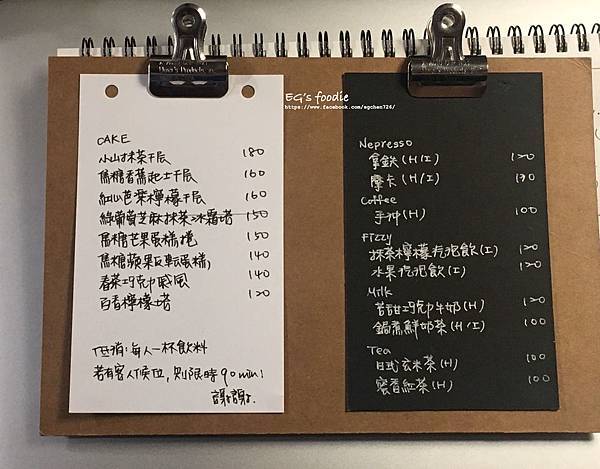 EG's foodie
https://www.facebook.com/egchen726/
CAKE
小山抹茶千层 180
焦糖香蕉起士千层 160
紅心芭樂檸檬千层 160
綠葡萄芝麻抹茶冰霜塔 150
焦糖芒果蛋糕捲 150
焦糖蘋果反転蛋糕 140
春茶巧克力戚風 140
百香檸檬塔 120
低消:每人一杯飲料
若有客人候位,則限時90min!
謝謝.
Nepresso
拿鉄(H/I) 120
摩卡(H/I) 130
Coffee
手沖(H) 100
Fizzy
抹茶檸檬气泡飲(I) 120
水果气泡飲(I) 120
Milk
苦甜巧克力牛奶(H) 120
鍋煮鮮奶茶(H/I) 100
Tea
日式玄米茶(H) 100
蜜香紅茶(H) 100